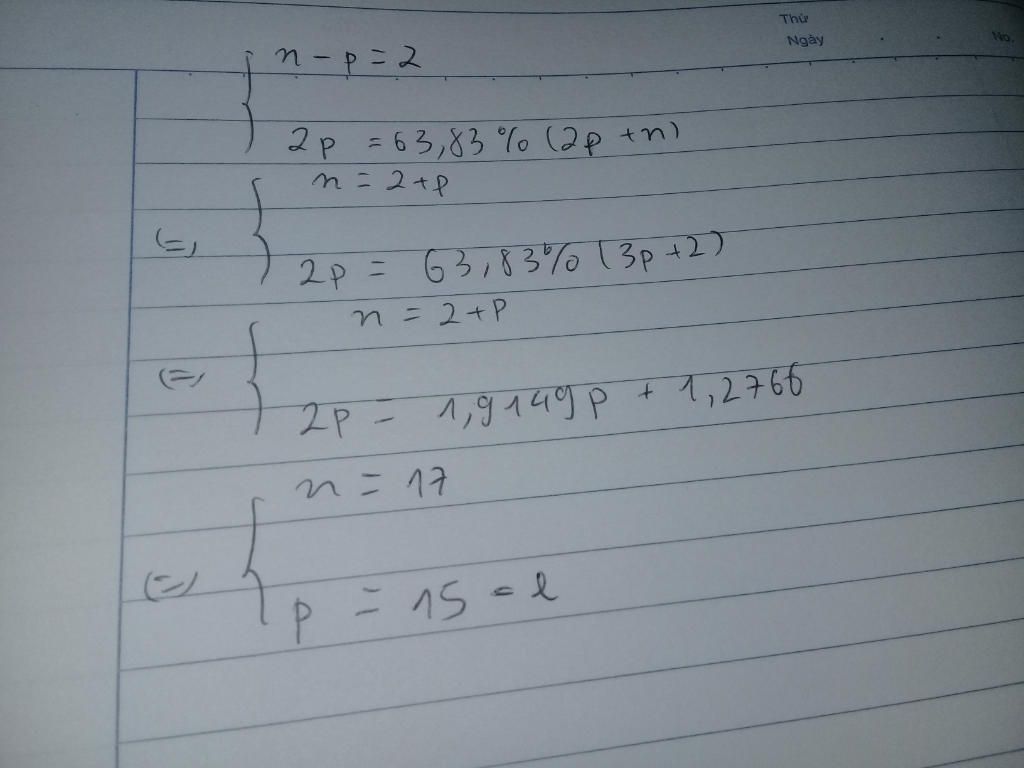 Thứ
Ngày
No.
n - p = 2
2p = 63,83% (2p + n)
n = 2 + p
(=) 2p = 63,83% (3p + 2)
n = 2 + p
(=) 2p = 1,9149p + 1,2766
n = 17
(=) p = 15 = e